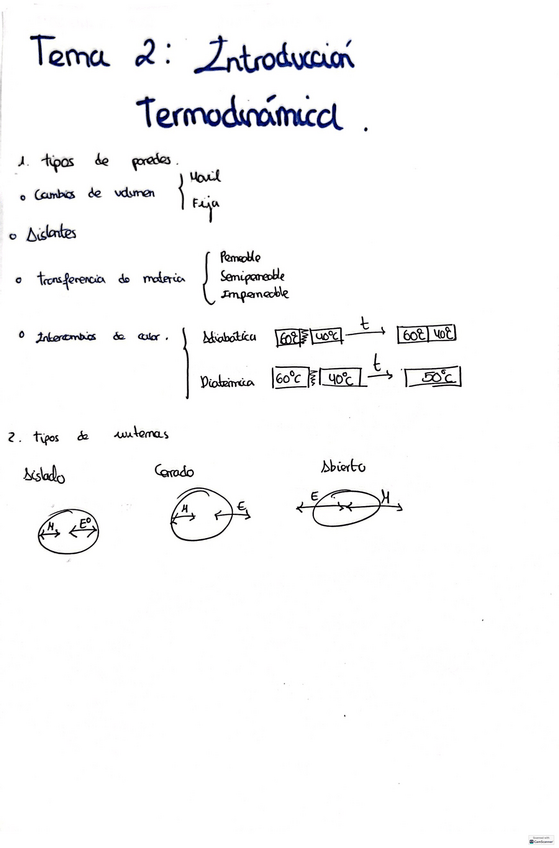 Tema 2: Introducción
Termodinámica.
1. tipos de paredes.
Cambios de volumen
Movil
Fija
Aislantes
transferencia de materia
Permeable
Semipermeable
Impermeable
Intercambios de calor.
Adiabática 60º 40ºC t 60º 40º
Diatérmica 60ºC 40ºC t 50ºC
2. tipos de sistemas
Aislado Cerrado Abierto
M Eº M E E M